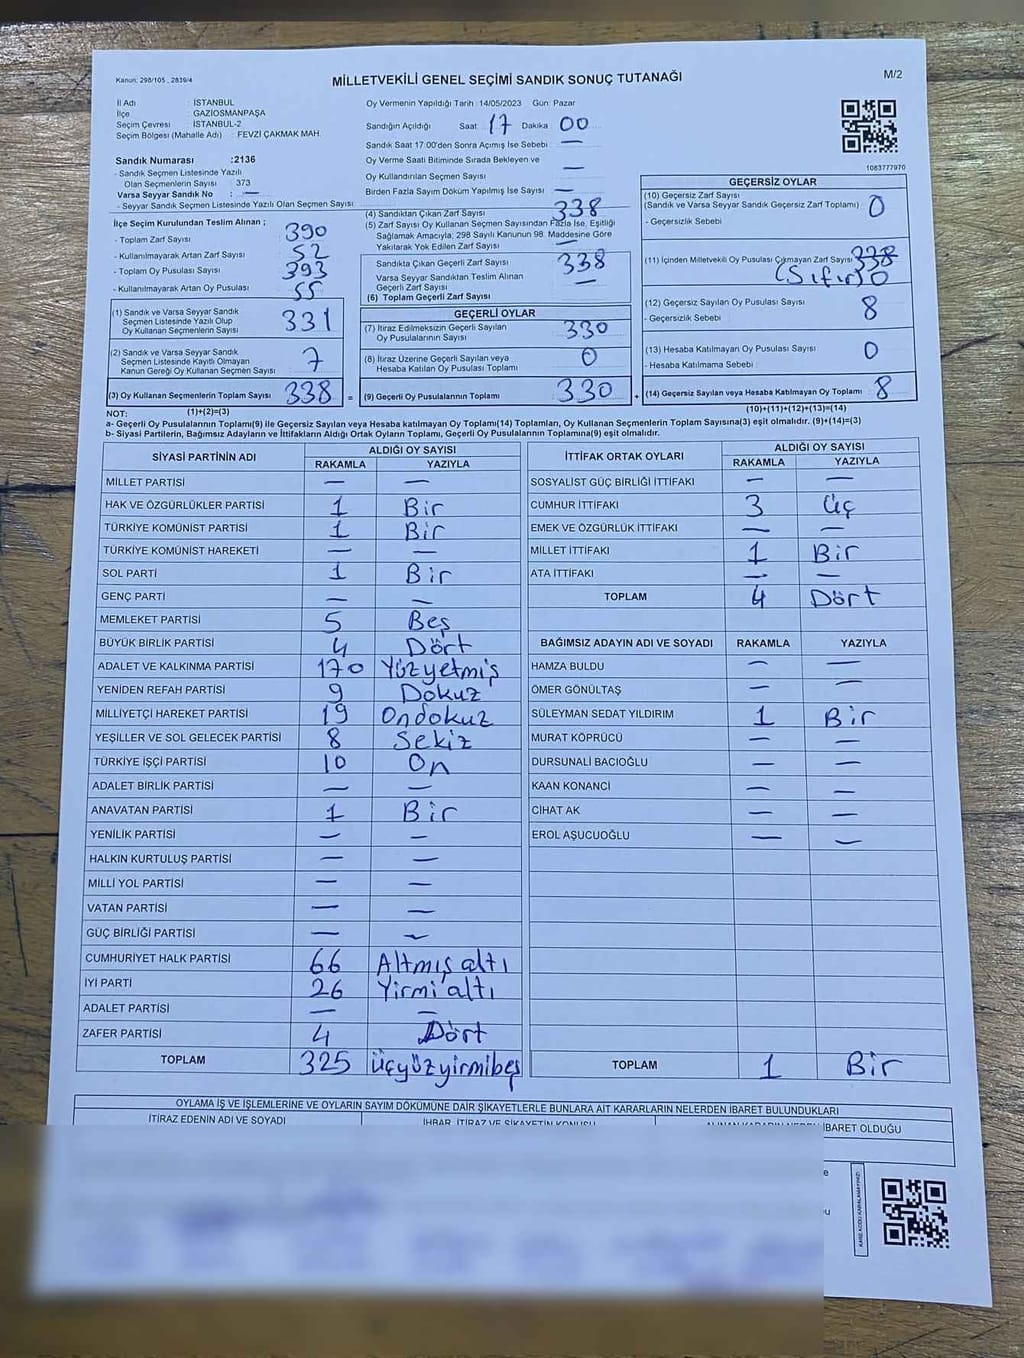 Kanun: 298/105 , 2839/4
MİLLETVEKİLİ GENEL SEÇİMİ SANDIK SONUÇ TUTANAĞI
M/2
İl Adı : İSTANBUL
İlçe : GAZİOSMANPAŞA
Seçim Çevresi : İSTANBUL-2
Seçim Bölgesi (Mahalle Adı) : FEVZİ ÇAKMAK MAH.
Sandık Numarası :2136
- Sandık Seçmen Listesinde Yazılı
Olan Seçmenlerin Sayısı : 373
Varsa Seyyar Sandık No : —
- Seyyar Sandık Seçmen Listesinde Yazılı Olan Seçmen Sayısı:
Oy Vermenin Yapıldığı Tarih : 14/05/2023 Gün: Pazar
Sandığın Açıldığı Saat : 17 Dakika : 00
Sandık Saat 17:00'den Sonra Açımış İse Sebebi : —
Oy Verme Saati Bitiminde Sırada Bekleyen ve
Oy Kullandırılan Seçmen Sayısı : —
Birden Fazla Sayım Döküm Yapılmış İse Sayısı : —
1083777970
İlçe Seçim Kurulundan Teslim Alınan ;
- Toplam Zarf Sayısı : 390
- Kullanılmayarak Artan Zarf Sayısı : 52
- Toplam Oy Pusulası Sayısı : 393
- Kullanılmayarak Artan Oy Pusulası : 55
(1) Sandık ve Varsa Seyyar Sandık
Seçmen Listesinde Yazılı Olup
Oy Kullanan Seçmenlerin Sayısı 331
(2) Sandık ve Varsa Seyyar Sandık
Seçmen Listesinde Kayıtlı Olmayan
Kanun Gereği Oy Kullanan Seçmen Sayısı 7
(3) Oy Kullanan Seçmenlerin Toplam Sayısı 338 =
(1)+(2)=(3)
(4) Sandıktan Çıkan Zarf Sayısı 338
(5) Zarf Sayısı Oy Kullanan Seçmen Sayısından Fazla İse, Eşitliği
Sağlamak Amacıyla; 298 Sayılı Kanunun 98. Maddesine Göre
Yakılarak Yok Edilen Zarf Sayısı —
Sandıkta Çıkan Geçerli Zarf Sayısı 338
Varsa Seyyar Sandıktan Teslim Alınan
Geçerli Zarf Sayısı —
(6) Toplam Geçerli Zarf Sayısı
GEÇERLİ OYLAR
(7) İtiraz Edilmeksizin Geçerli Sayılan
Oy Pusulalarının Sayısı : 330
(8) İtiraz Üzerine Geçerli Sayılan veya
Hesaba Katılan Oy Pusulası Toplamı : 0
(9) Geçerli Oy Pusulalarının Toplamı : 330 +
GEÇERSİZ OYLAR
(10) Geçersiz Zarf Sayısı
(Sandık ve Varsa Seyyar Sandık Geçersiz Zarf Toplamı) : 0
- Geçersizlik Sebebi :
(11) İçinden Milletvekili Oy Pusulası Çıkmayan Zarf Sayısı: 338
(Sıfır) 0
(12) Geçersiz Sayılan Oy Pusulası Sayısı : 8
- Geçersizlik Sebebi :
(13) Hesaba Katılmayan Oy Pusulası Sayısı : 0
- Hesaba Katılmama Sebebi :
(14) Geçersiz Sayılan veya Hesaba Katılmayan Oy Toplamı : 8
(10)+(11)+(12)+(13)=(14)
NOT:
a- Geçerli Oy Pusulalarının Toplamı(9) ile Geçersiz Sayılan veya Hesaba katılmayan Oy Toplamı(14) Toplamları, Oy Kullanan Seçmenlerin Toplam Sayısına(3) eşit olmalıdır. (9)+(14)=(3)
b- Siyasi Partilerin, Bağımsız Adayların ve İttifakların Aldığı Ortak Oyların Toplamı, Geçerli Oy Pusulalarının Toplamına(9) eşit olmalıdır.
SİYASİ PARTİNİN ADI ALDIĞI OY SAYISI
RAKAMLA YAZIYLA
MİLLET PARTİSİ — —
HAK VE ÖZGÜRLÜKLER PARTİSİ 1 Bir
TÜRKİYE KOMÜNİST PARTİSİ 1 Bir
TÜRKİYE KOMÜNİST HAREKETİ — —
SOL PARTİ 1 Bir
GENÇ PARTİ — —
MEMLEKET PARTİSİ 5 Beş
BÜYÜK BİRLİK PARTİSİ 4 Dört
ADALET VE KALKINMA PARTİSİ 170 Yüzyetmiş
YENİDEN REFAH PARTİSİ 9 Dokuz
MİLLİYETÇİ HAREKET PARTİSİ 19 Ondokuz
YEŞİLLER VE SOL GELECEK PARTİSİ 8 Sekiz
TÜRKİYE İŞÇİ PARTİSİ 10 On
ADALET BİRLİK PARTİSİ — —
ANAVATAN PARTİSİ 1 Bir
YENİLİK PARTİSİ — —
HALKIN KURTULUŞ PARTİSİ — —
MİLLİ YOL PARTİSİ — —
VATAN PARTİSİ — —
GÜÇ BİRLİĞİ PARTİSİ — —
CUMHURİYET HALK PARTİSİ 66 Altmış altı
İYİ PARTİ 26 Yirmi altı
ADALET PARTİSİ — —
ZAFER PARTİSİ 4 Dört
TOPLAM 325 üçyüzyirmibeş
İTTİFAK ORTAK OYLARI ALDIĞI OY SAYISI
RAKAMLA YAZIYLA
SOSYALİST GÜÇ BİRLİĞİ İTTİFAKI — —
CUMHUR İTTİFAKI 3 Üç
EMEK VE ÖZGÜRLÜK İTTİFAKI — —
MİLLET İTTİFAKI 1 Bir
ATA İTTİFAKI — —
TOPLAM 4 Dört
BAĞIMSIZ ADAYIN ADI VE SOYADI RAKAMLA YAZIYLA
HAMZA BULDU — —
ÖMER GÖNÜLTAŞ — —
SÜLEYMAN SEDAT YILDIRIM 1 Bir
MURAT KÖPRÜCÜ — —
DURSUNALİ BACIOĞLU — —
KAAN KONANCİ — —
CİHAT AK — —
EROL AŞUCUOĞLU — —
TOPLAM 1 Bir
OYLAMA İŞ VE İŞLEMLERİNE VE OYLARIN SAYIM DÖKÜMÜNE DAİR ŞİKAYETLERLE BUNLARA AİT KARARLARIN NELERDEN İBARET BULUNDUKLARI
İTİRAZ EDENİN ADI VE SOYADI İHBAR, İTİRAZ VE ŞİKAYETİN KONUSU ALINAN KARARIN NEDEN İBARET OLDUĞU